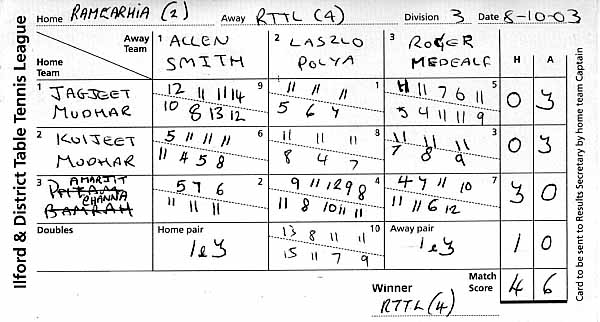 Ilford & District Table Tennis League
Home RAMGARHIA (2) Away RTTL (4) Division 3 Date 8-10-03
Away Team 1 ALLEN SMITH 2 LASZLO POLYA 3 ROGER MEDCALF H A
Home Team
1 JAGJEET MUDHAR 12 11 11 14 9 11 11 11 1 11 11 7 6 11 5 0 3
10 8 13 12 5 6 4 5 4 11 11 9
2 KULJEET MUDHAR 5 11 11 11 6 11 11 11 8 11 11 11 3 0 3
11 4 5 8 8 4 7 7 8 9
3 AMARJIT CHANNA 5 7 6 2 9 11 12 9 8 4 4 7 11 10 7 3 0
11 11 11 11 8 10 11 11 11 11 6 12
Doubles Home pair 1 & 3 13 8 11 11 10 Away pair 1 & 3 1 0
15 11 7 9
Winner RTTL (4) Match Score 4 6
Card to be sent to Results Secretary by home team Captain